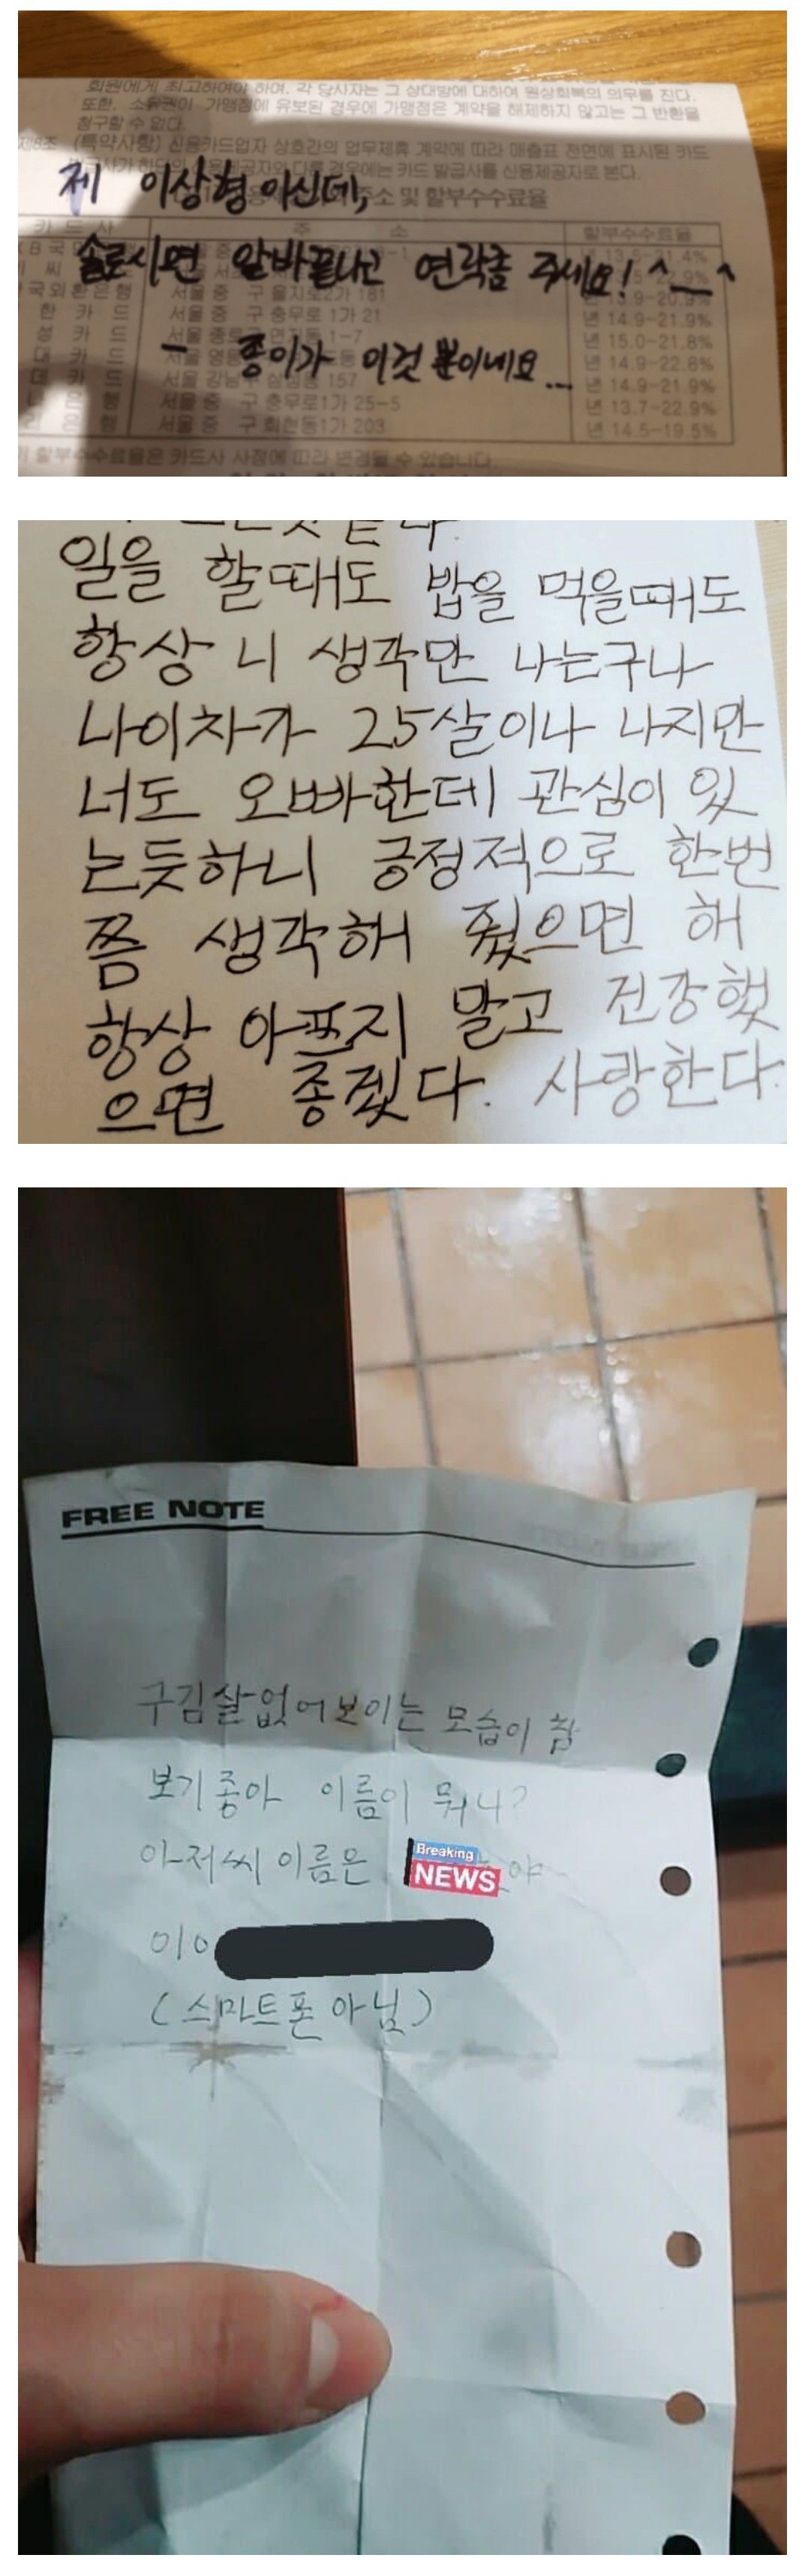 회원에게 최고하여야 하며, 각 당사자는 그 상대방에 대하여 원상회복의 의무를 진다.
또한, 소유권이 가맹점에 유보된 경우에 가맹점은 계약을 해제하지 않고는 그 반환을
청구할 수 없다.
(특약사항) 신용카드업자 상호간의 업무제휴 계약에 따라 매출표 전면에 표시된 카드
다른 경우에는 카드 발급사를 신용제공자로 본다.
제 이상형이신데,
주소 및 할부수수료율
카 드 사 주 소 할부수수료율
솔로시면 알바끝나고 연락좀 주세요! ^__^
국외환은행 서울 중 구 을지로2가 181
한 카 드 서울 중 구 충무로 1가 21 년 14.9-21.9%
성 카 드 서울 종로구 연지동 1-7 년 15.0-21.8%
- 종이가 이것 뿐이네요...
대 카 드 서울 년 14.9-22.8%
데 카 드 서울 강남구 157 년 14.9-21.9%
은 행 서울 중 구 충무로1가 25-5 년 13.7-22.9%
리 은 행 서울 중 구 회현동1가 203 년 14.5-19.5%
할부수수료율은 카드사 사정에 따라 변경될 수 있습니다.
일을 할때도 밥을 먹을때도
항상 니 생각만 나는구나
나이차가 25살이나 나지만
너도 오빠한데 관심이 있
는듯하니 긍정적으로 한번
쯤 생각해 줬으면 해
항상 아프지 말고 건강했
으면 좋겠다. 사랑한다.
FREE NOTE
구김살없어보이는 모습이 참
보기좋아 이름이 뭐니?
아저씨 이름은 Breaking NEWS 야
010
(스마트폰 아님)